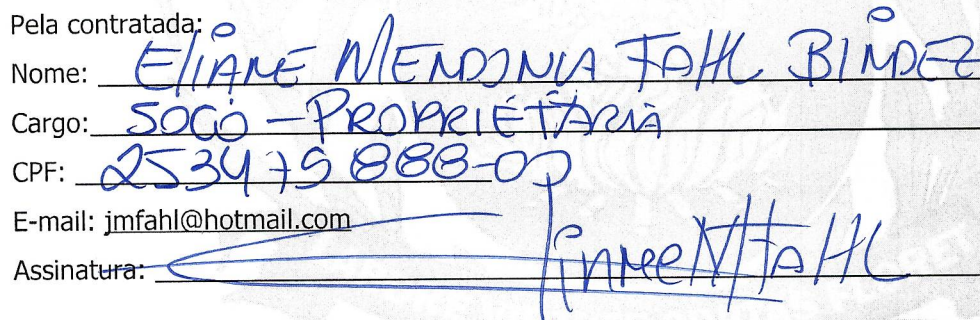 Pela contratada:
Nome: EliANE MENDONCA FAHL BINDEZ
Cargo: SOCIO - PROPRIETARIA
CPF: 253475888-00
E-mail: jmfahl@hotmail.com
Assinatura: